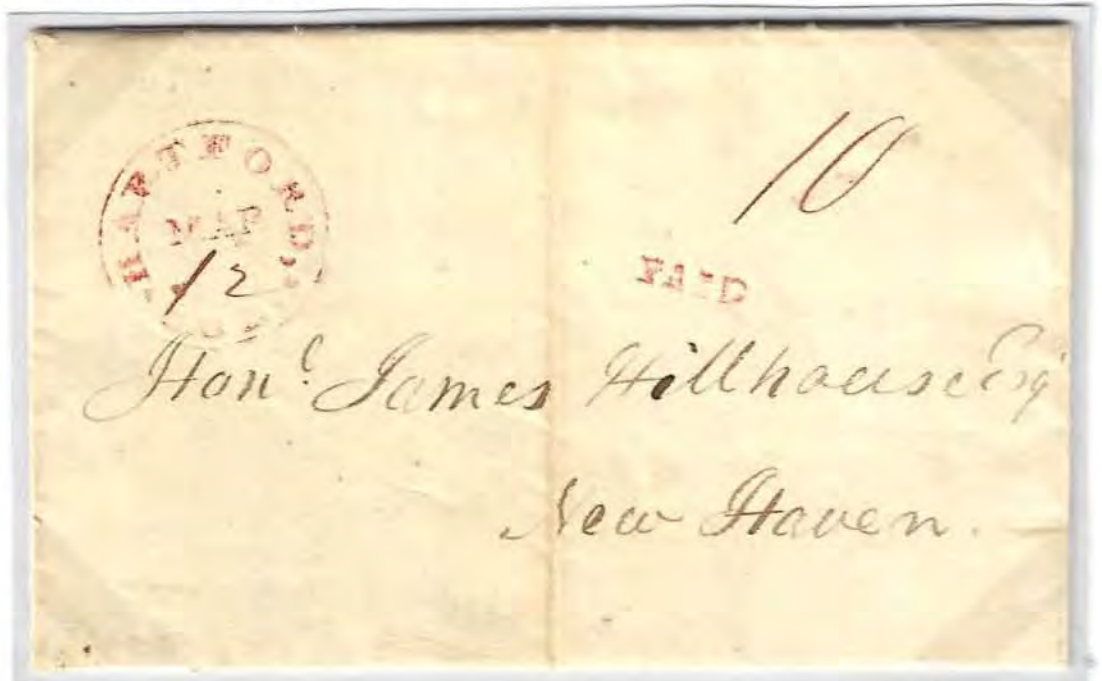 HARTFORD,
MAR
12
10
PAID
Honl. James Hillhouse Esq
New Haven.